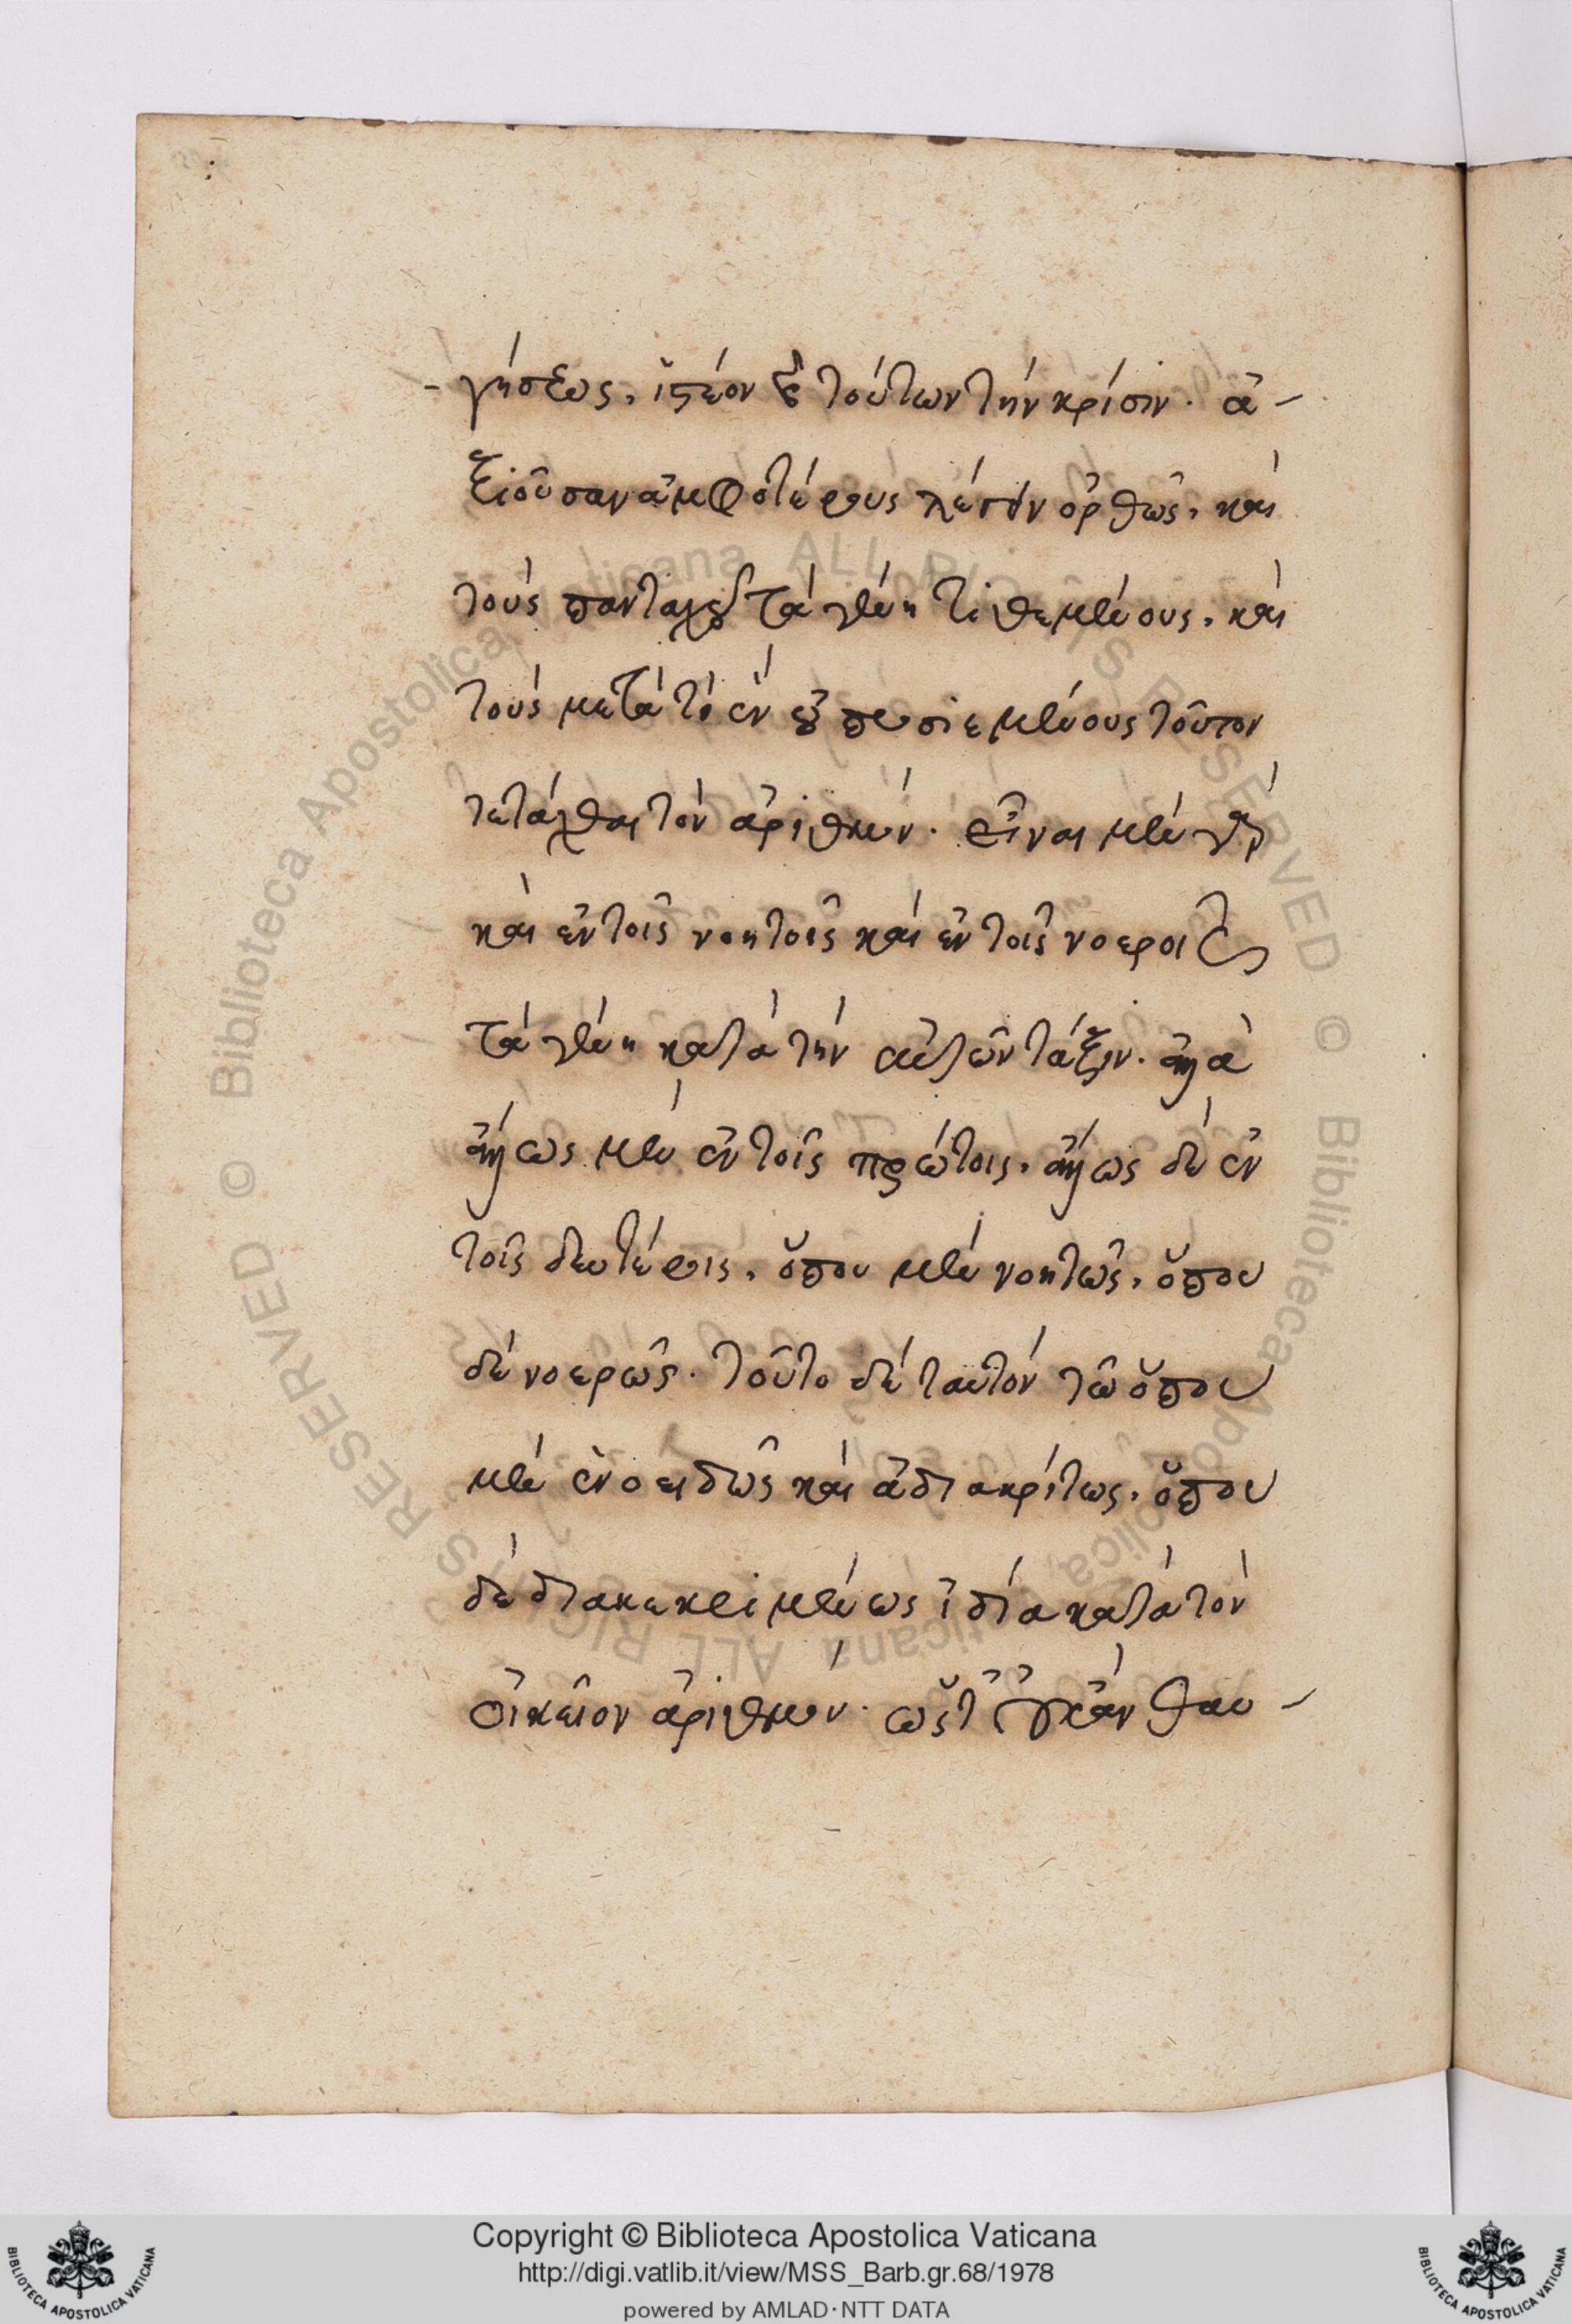 -γήσεως, ἰστέον ἐκ τούτων τὴν κρίσιν. ἀ-
ξιοῦσαν ἀμφοτέρους λέγειν ὀρθῶς, καὶ
τοὺς πανταχοῦ τὰ γένη τιθεμένους, καὶ
τοὺς μετὰ τὸ ἓν οὐ προσιεμένους τοῦτον
τετάχθαι τὸν ἀριθμόν. εἶναι μὲν γὰρ
καὶ ἐν τοῖς νοητοῖς καὶ ἐν τοῖς νοεροῖς
τὰ γένη κατὰ τὴν αὐτῶν τάξιν. ἀλλὰ
ἄλλως μὲν ἐν τοῖς πρώτοις, ἄλλως δὲ ἐν
τοῖς δευτέροις, ὅπου μὲν νοητῶς, ὅπου
δὲ νοερῶς. τοῦτο δὲ ταὐτὸν τῶ ὅπου
μὲν ἑνοειδῶς καὶ ἀδιακρίτως, ὅπου
δὲ διακεκριμένως ἰδία κατὰ τὸν
οἰκεῖον ἀριθμόν. ὥστ' οὐκ ἂν θαυ-
Copyright © Biblioteca Apostolica Vaticana
http://digi.vatlib.it/view/MSS_Barb.gr.68/1978
powered by AMLAD·NTT DATA
BIBLIOTECA APOSTOLICA VATICANA
BIBLIOTECA APOSTOLICA VATICANA
© Biblioteca Apostolica Vaticana ALL RIGHTS RESERVED
© Biblioteca Apostolica Vaticana ALL RIGHTS RESERVED